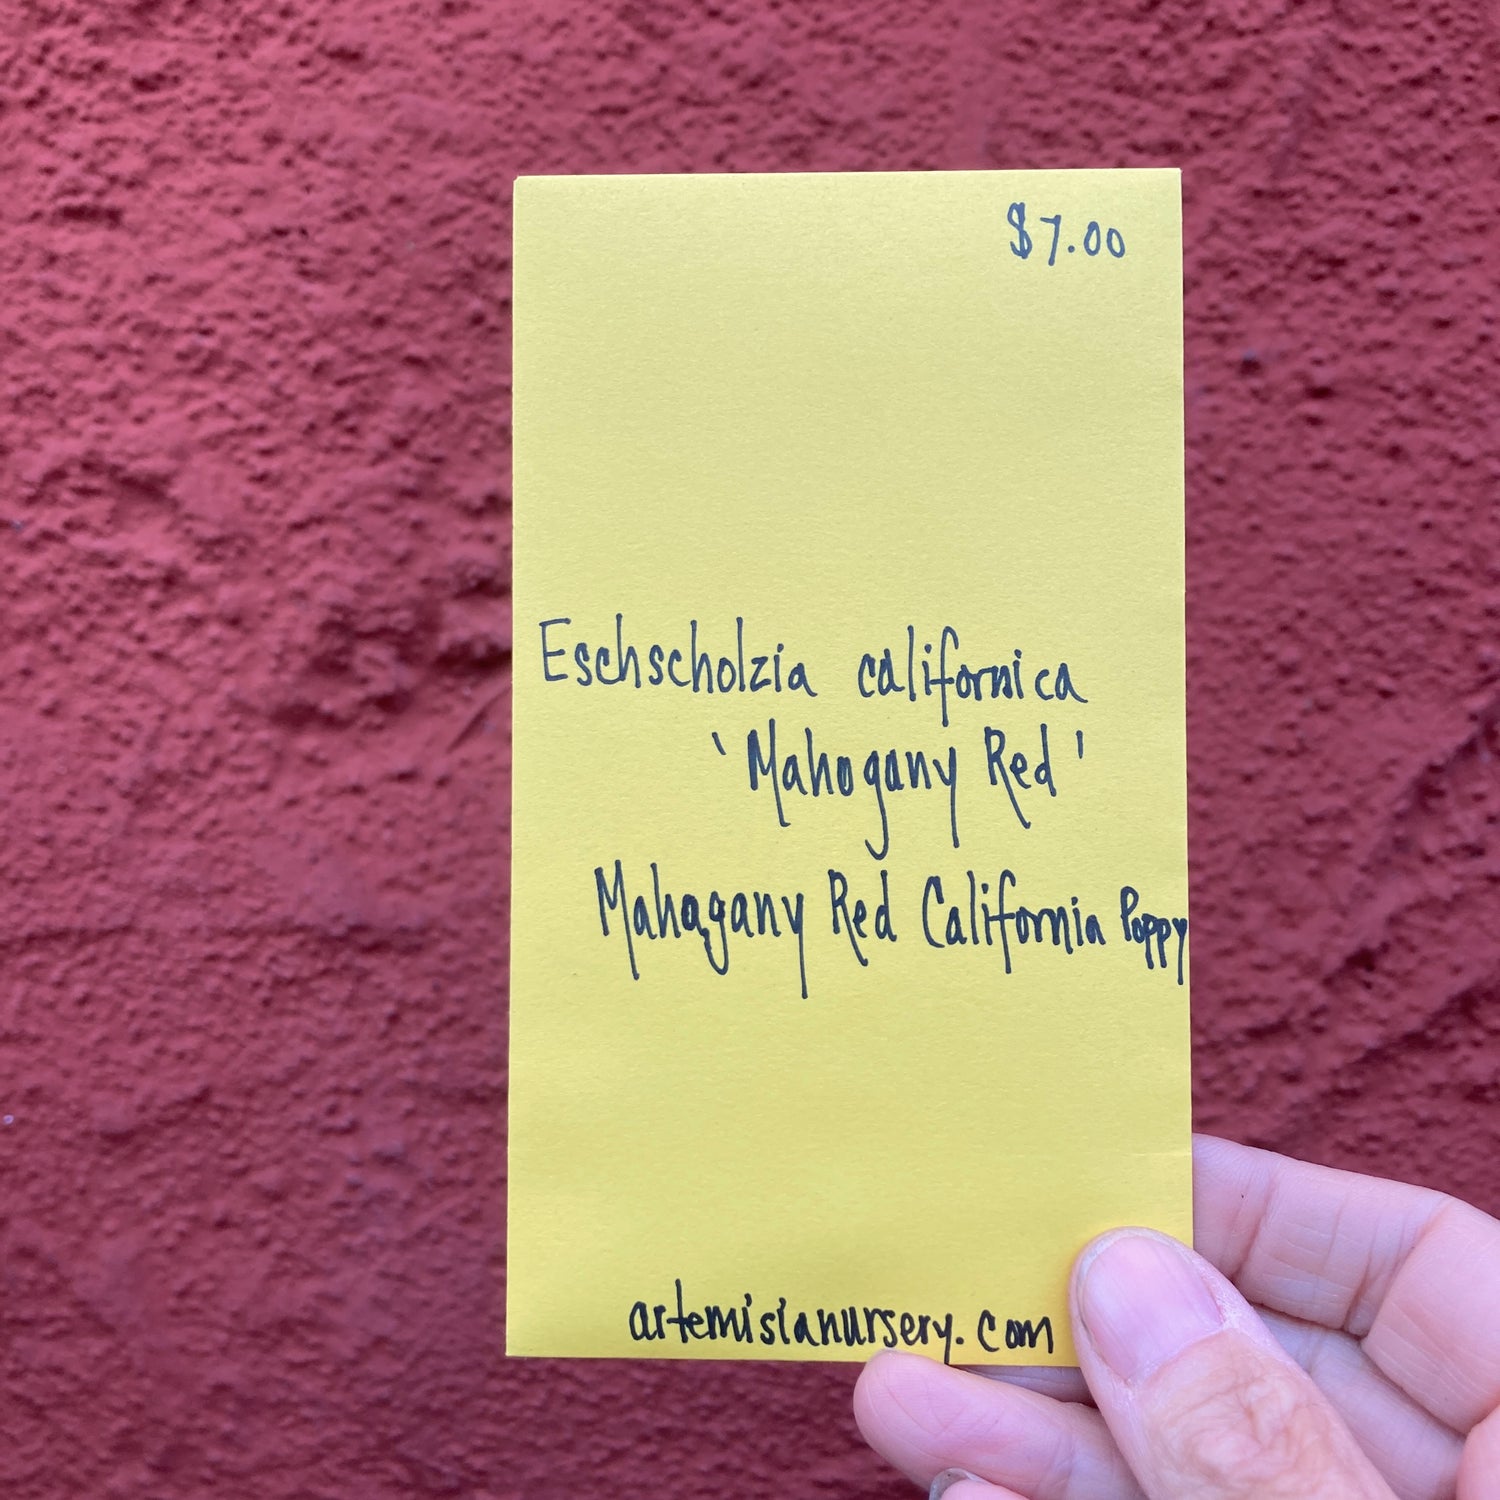 $7.00
Eschscholzia californica
'Mahogany Red'
Mahagany Red California Poppy
artemisianursery.com